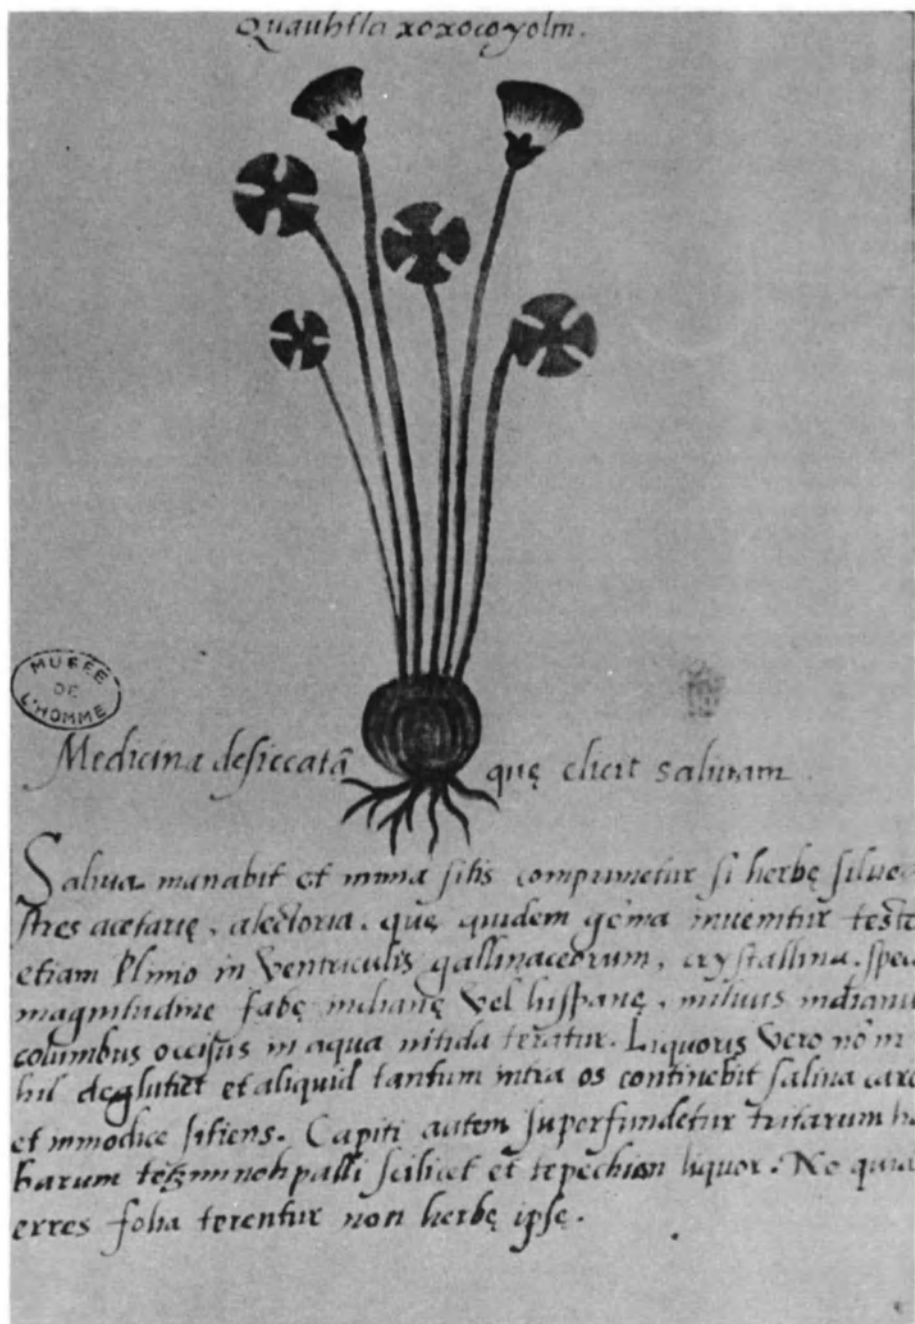 Quauhtla xoxocoyolin.
MUSÉE
DE
L'HOMME
Medicina desiccatā quę elicit salivam.
Saliva manabit et nimia sitis comprimetur si herbę silve
stres acetarię, alectoria, quę quidem gēma invenitur teste
etiam Plinio in Ventriculis gallinaceorum, crystallina. spec
magnitudine fabę indianę Vel hispanę, milvus indianu
columbus occisus in aqua nitida teratur. Liquoris Vero nō ni
hil deglutiet et aliquid tantum intra os continebit saliva care
et immodice sitiens. Capiti autem superfundetur tritarum h
barum nohpalli scilicet et tepechian liquor. No quia
erres folia terentur non herbę ipsę.